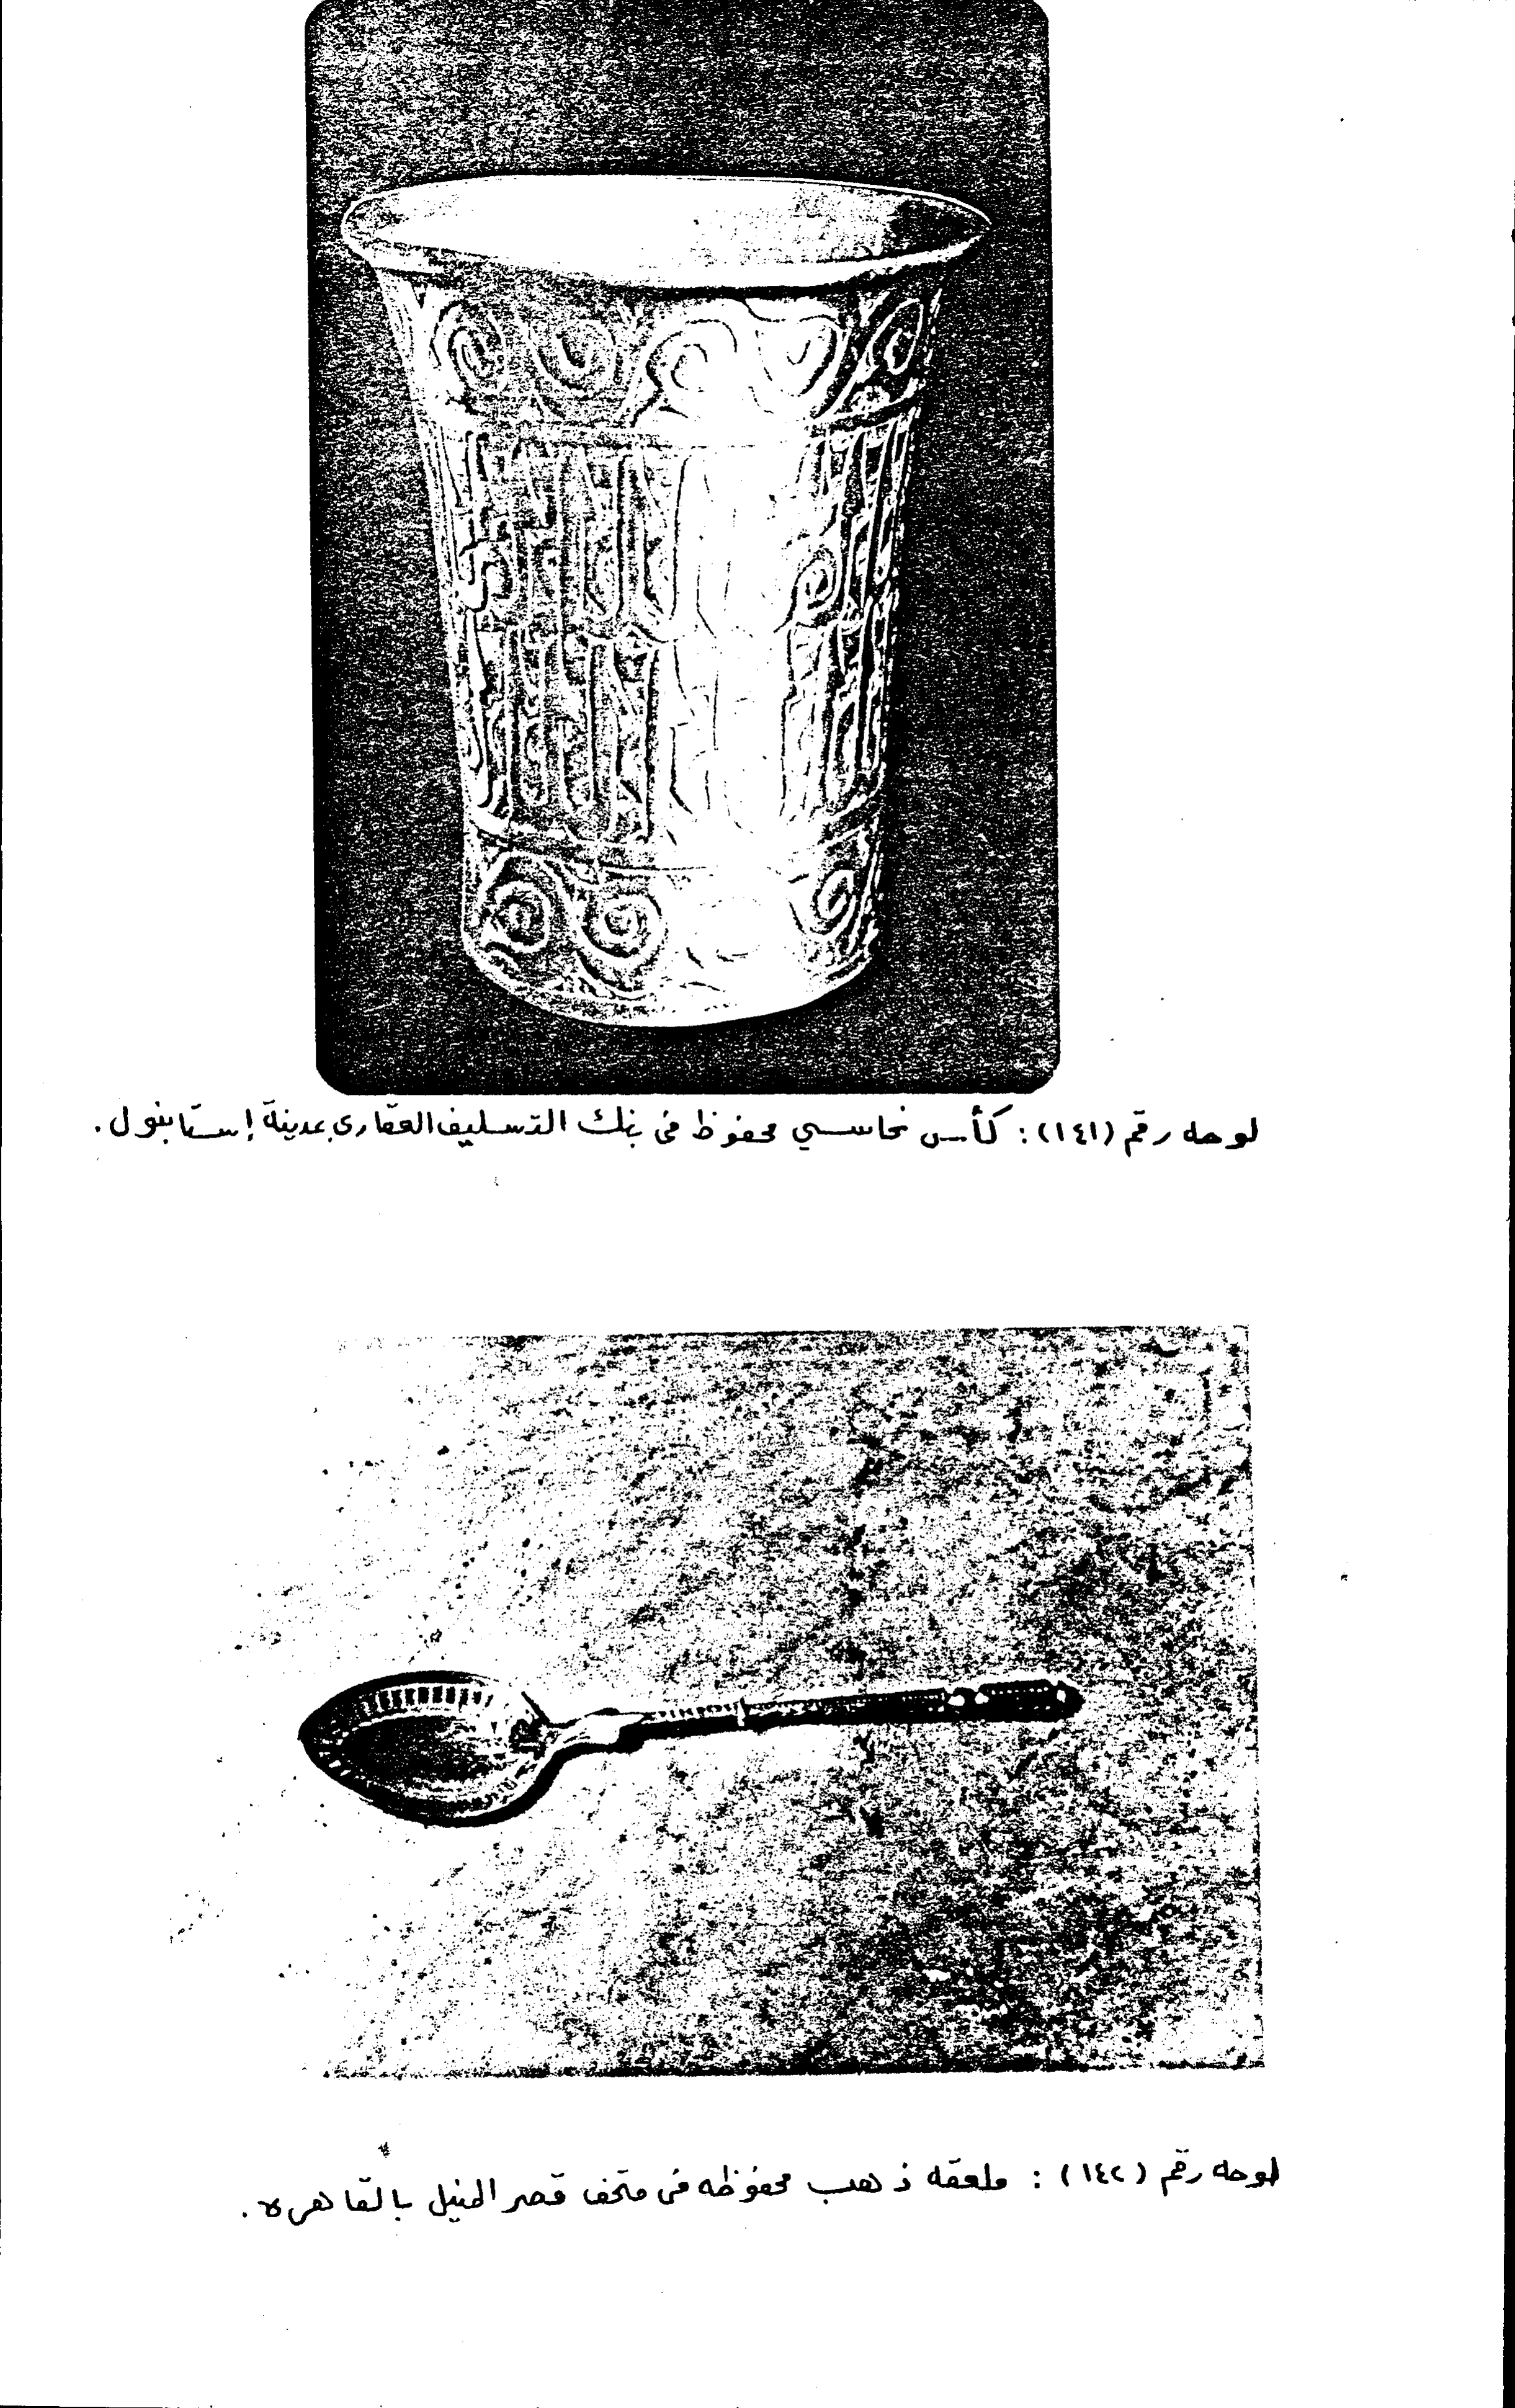 لوحه رقم (١٤١): كأس نحاسي محفوظ فى بنك التسليف العقارى بمدينة إستانبول.
لوحه رقم (١٤٢): ملعقه ذهب محفوظه فى متحف قصر المنيل بالقاهره.